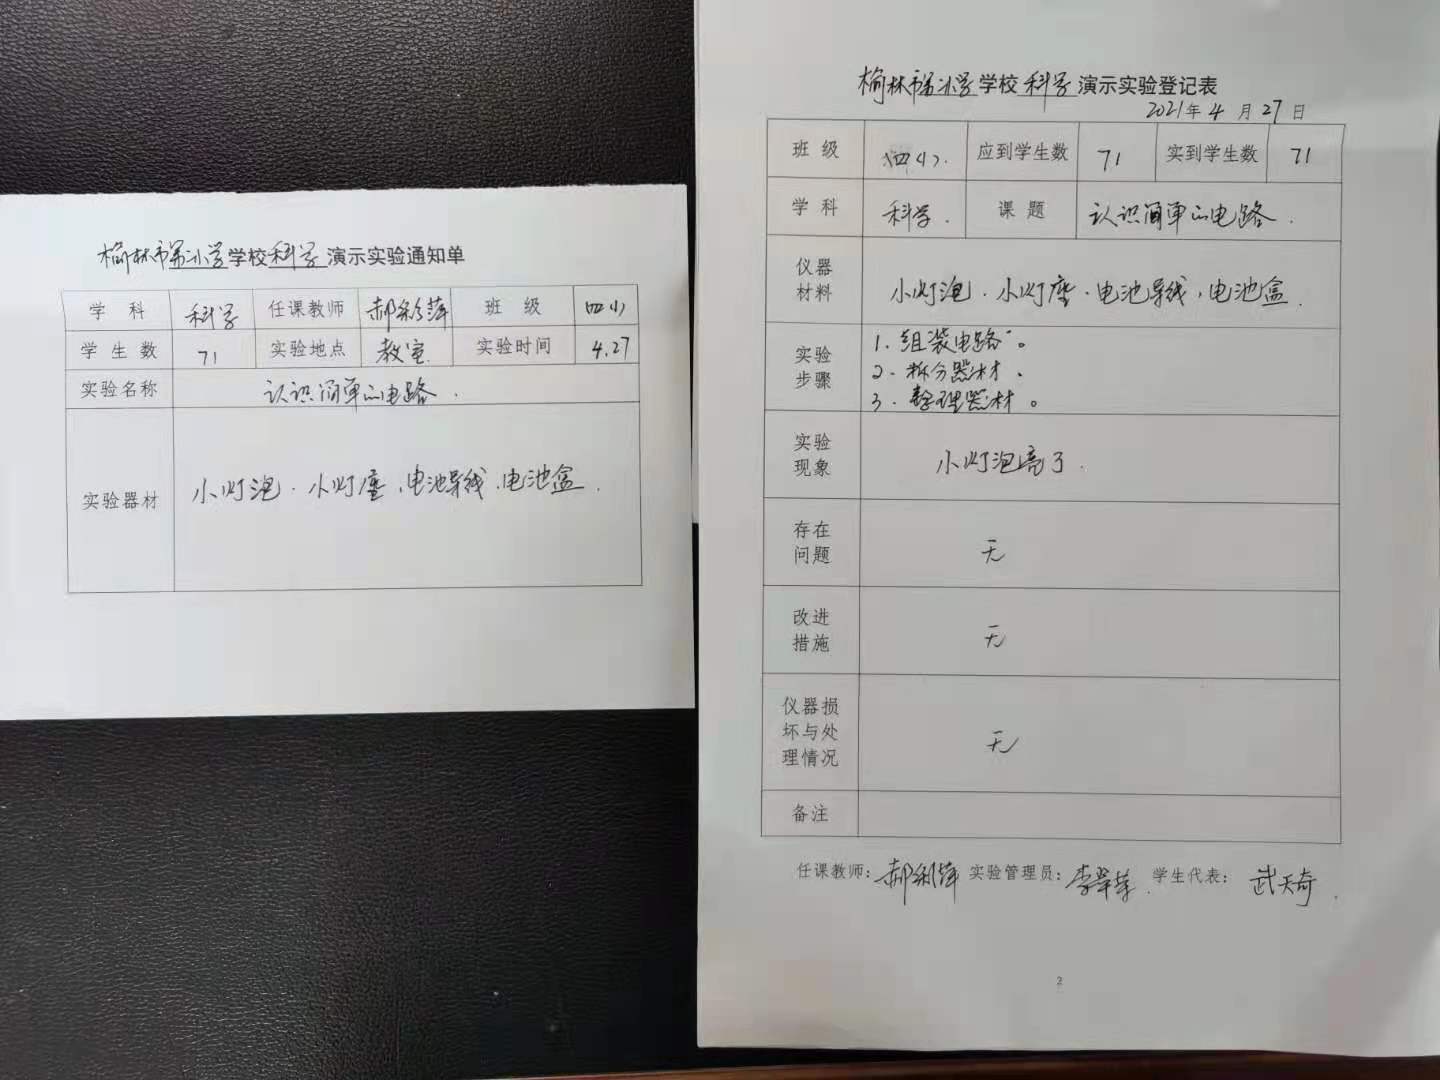 榆林市第小学学校科学演示实验通知单
学 科 科学 任课教师 郝彩萍 班 级 四(1)
学 生 数 71 实验地点 教室 实验时间 4.27
实验名称 认识简单的电路.
实验器材 小灯泡、小灯座、电池导线、电池盒.
榆林市第小学学校科学演示实验登记表
2021年4月27日
班 级 四(1). 应到学生数 71 实到学生数 71
学 科 科学. 课 题 认识简单的电路.
仪器
材料
小灯泡、小灯座、电池导线、电池盒.
实验
步骤
1. 组装电路。
2. 拆分器材.
3. 整理器材。
实验
现象
小灯泡亮了.
存在
问题
无
改进
措施
无
仪器损
坏与处
理情况
无
备注
任课教师: 郝彩萍 实验管理员: 李 学生代表: 武天奇.
2